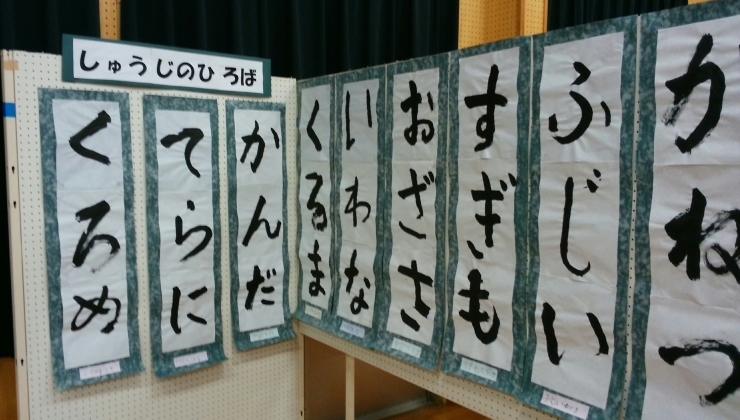 しゅうじのひろば
かねつ
ふじい
すぎも
おざさ
いわな
くるま
かんだ
てらに
くろぬ